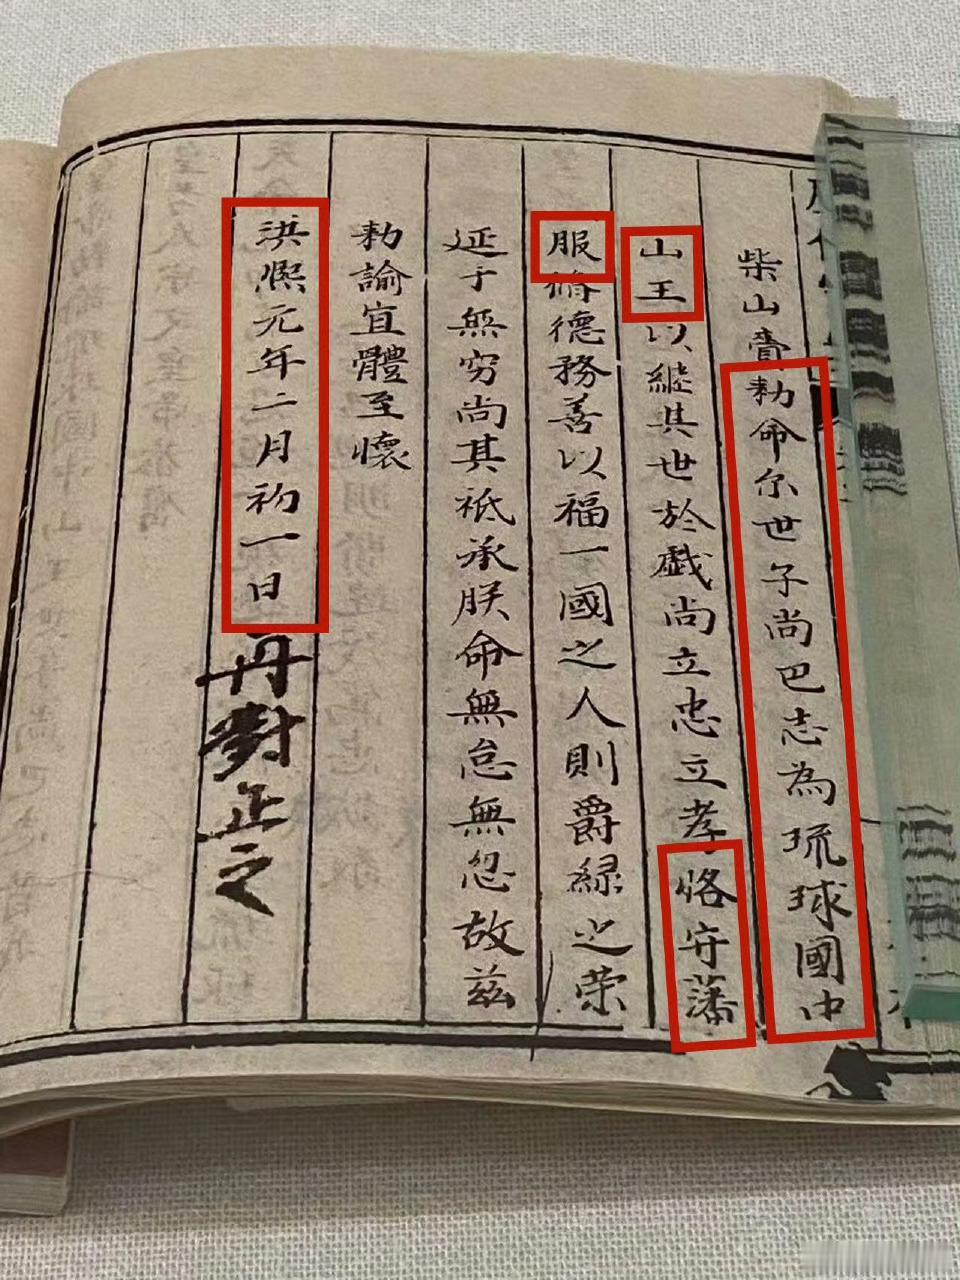 柴山賫勅命尔世子尚巴志為琉球國中
山王以継其世於戯尚立忠立孝恪守藩
服脩德務善以福一國之人則爵綠之荣
延于無穷尚其祗承朕命無怠無忽故兹
勅諭宜體至懷
洪熈元年二月初一日
再對正之